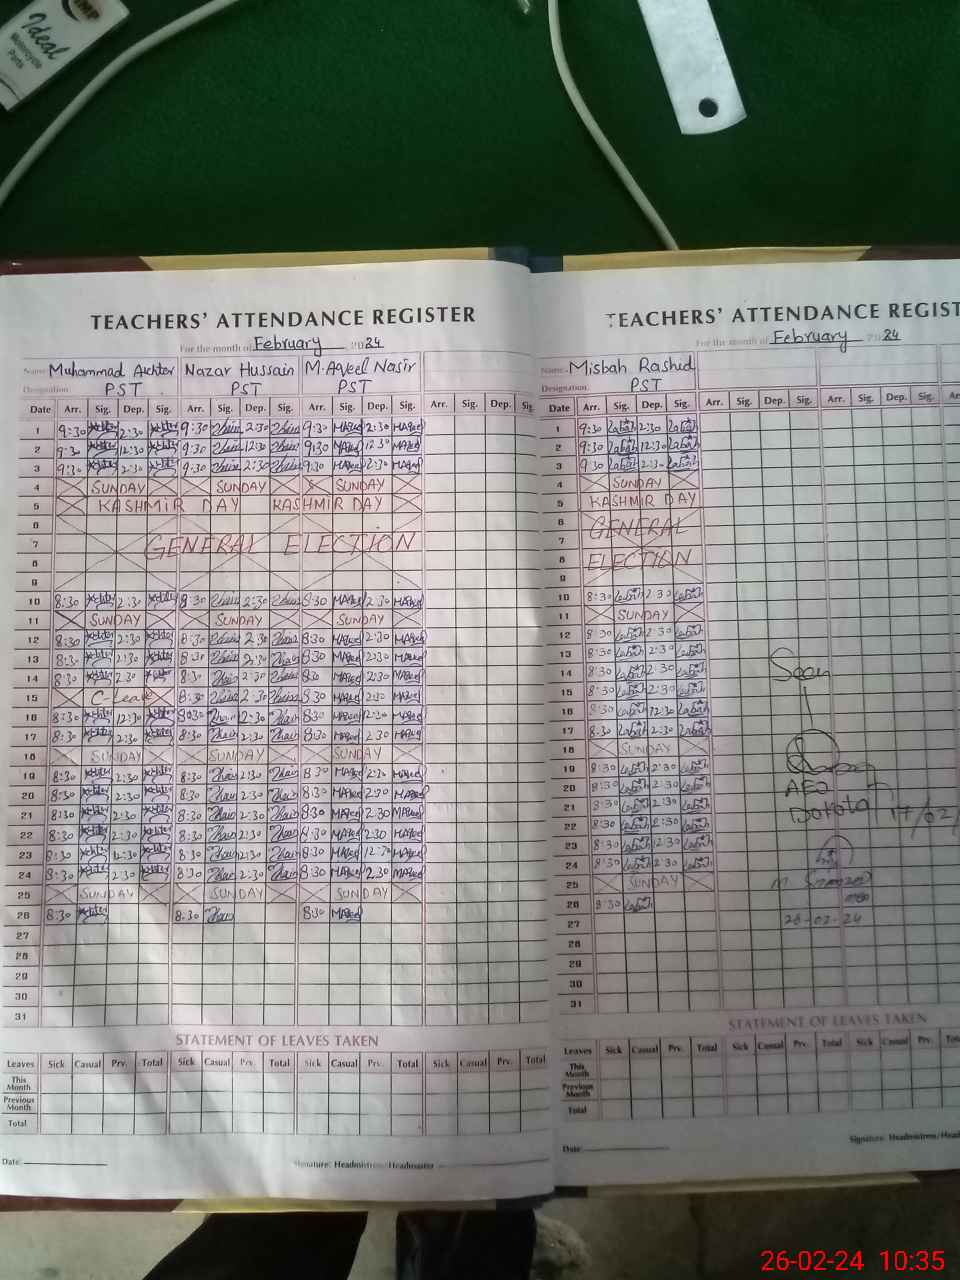 IMP
Ideal
Motorcycle
Parts
TEACHERS' ATTENDANCE REGISTER
For the month of February 2024
Name Muhammad Akhter Nazar Hussain M. Aqeel Nasir
Designation PST PST PST
Date Arr. Sig. Dep. Sig. Arr. Sig. Dep. Sig. Arr. Sig. Dep. Sig. Arr. Sig. Dep. Sig.
1 9:30 2:30 9:30 2:30 9:30 2:30
2 9:30 12:30 9:30 12:30 9:30 12:30
3 9:30 2:30 9:30 2:30 9:30 2:30
4 SUNDAY SUNDAY SUNDAY
5 KASHMIR DAY KASHMIR DAY
6
7 GENERAL ELECTION
8
9
10 8:30 2:30 8:30 2:30 8:30 2:30
11 SUNDAY SUNDAY SUNDAY
12 8:30 2:30 8:30 2:30 8:30 2:30
13 8:30 2:30 8:30 2:30 8:30 2:30
14 8:30 2:30 8:30 2:30 8:30 2:30
15 C-Leave 8:30 2:30 8:30 2:30
16 8:30 12:30 8:30 12:30 8:30 12:30
17 8:30 2:30 8:30 2:30 8:30 2:30
18 SUNDAY SUNDAY SUNDAY
19 8:30 2:30 8:30 2:30 8:30 2:30
20 8:30 2:30 8:30 2:30 8:30 2:30
21 8:30 2:30 8:30 2:30 8:30 2:30
22 8:30 2:30 8:30 2:30 8:30 2:30
23 8:30 12:30 8:30 12:30 8:30 12:30
24 8:30 2:30 8:30 2:30 8:30 2:30
25 SUNDAY SUNDAY SUNDAY
26 8:30 8:30 8:30
27
28
29
30
31
STATEMENT OF LEAVES TAKEN
Leaves Sick Casual Prv. Total Sick Casual Prv. Total Sick Casual Prv. Total Sick Casual Prv. Total
This Month
Previous Month
Total
Date: Signature: Headmistress/Headmaster
TEACHERS' ATTENDANCE REGIST
For the month of February 2024
Name. Misbah Rashid
Designation. PST
Date Arr. Sig. Dep. Sig. Arr. Sig. Dep. Sig. Arr. Sig. Dep. Sig. Arr.
1 9:30 2:30
2 9:30 12:30
3 9:30 2:30
4 SUNDAY
5 KASHMIR DAY
6 GENERAL
7
8 ELECTION
9
10 8:30 2:30
11 SUNDAY
12 8:30 2:30
13 8:30 2:30
14 8:30 2:30
15 8:30 2:30
16 8:30 12:30
17 8:30 2:30
18 SUNDAY
19 8:30 2:30
20 8:30 2:30
21 8:30 2:30
22 8:30 2:30
23 8:30 12:30
24 8:30 2:30
25 SUNDAY
26 8:30
27
28
29
30
31
Seen
AEO
17/02/
26-02-24
STATEMENT OF LEAVES TAKEN
Leaves Sick Casual Prv. Total Sick Casual Prv. Total Sick Casual Prv. Total
This Month
Previous Month
Total
Date: Signature: Headmistress/Head
26-02-24 10:35